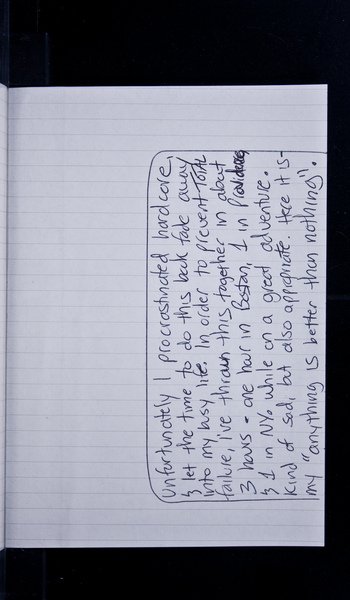 Unfortunately I procrastinated hardcore
& let the time to do this book fade away
into my busy life. In order to prevent TOTAL
failure, I've thrown this together in about
3 hours - one hour in Boston, 1 in Providence,
& 1 in NY. while on a great adventure.
Kind of sad, but also appropriate. Here it is -
my "anything is better than nothing".